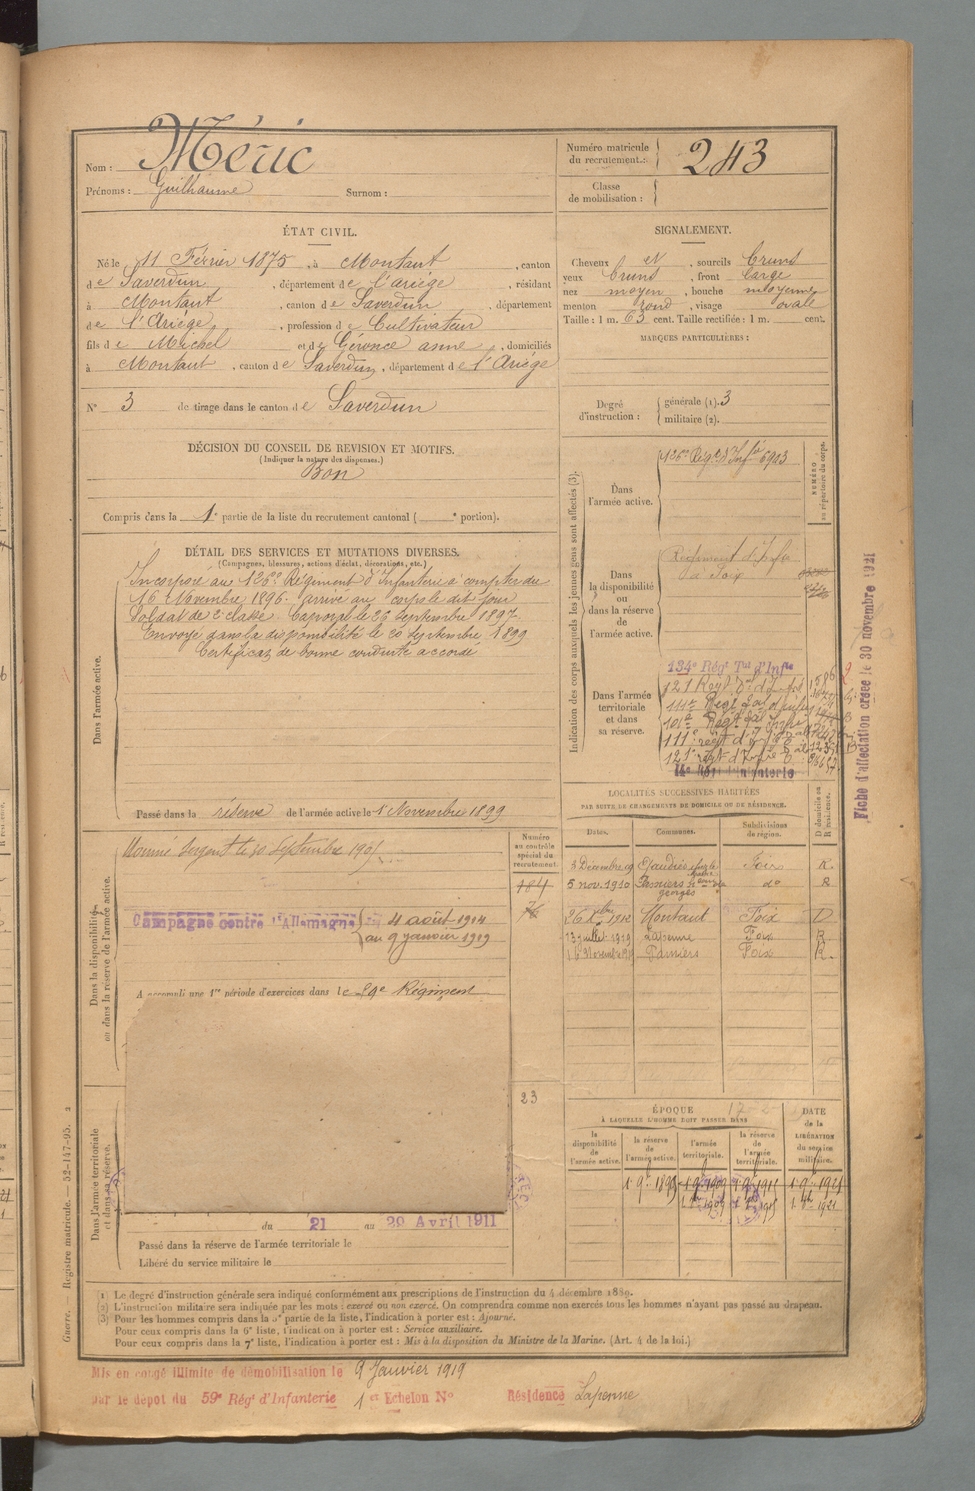 Nom : Méric
Prénoms : Guilhaume Surnom :
Numéro matricule du recrutement : 243
Classe de mobilisation :
ÉTAT CIVIL.
Né le 11 Février 1875, à Montaut, canton
de Saverdun, département de l'ariége, résidant
à Montaut, canton de Saverdun, département
de l'Ariége, profession de Cultivateur
fils de Michel et de Géronce anne, domiciliés
à Montaut, canton de Saverdun, département de l'Ariége
N° 3 de tirage dans le canton de Saverdun
SIGNALEMENT.
Cheveux et, sourcils bruns
yeux bruns, front large
nez moyen, bouche moyenne
menton rond, visage ovale
Taille : 1 m. 63 cent. Taille rectifiée : 1 m. cent.
MARQUES PARTICULIÈRES :
Degré d'instruction : générale (1). 3
militaire (2).
DÉCISION DU CONSEIL DE REVISION ET MOTIFS.
(Indiquer la nature des dispenses.)
Bon
Compris dans la 1e partie de la liste du recrutement cantonal ( e portion).
DÉTAIL DES SERVICES ET MUTATIONS DIVERSES.
(Campagnes, blessures, actions d'éclat, décorations, etc.)
Dans l'armée active.
Incorporé au 126e Régiment d'Infanterie à compter du
16 Novembre 1896. arrivé au corps le dit jour
Soldat de 2e classe. Caporal le 26 Septembre 1897.
Envoyé dans la disponibilité le 20 Septembre 1899
Certificat de bonne conduite accordé
Passé dans la réserve de l'armée active le 1 Novembre 1899
Indication des corps auxquels les jeunes gens sont affectés (3).
NUMÉRO au répertoire du corps.
Dans l'armée active.
126e Rég. d'Infie 6903
Dans la disponibilité ou dans la réserve de l'armée active.
Régiment d'Infie
à Foix
Dans l'armée territoriale et dans sa réserve.
134e Régt Tal d'Infie
Fiche d'affectation créée le 30 novembre 1921
Dans la disponibilité ou dans la réserve de l'armée active.
Nommé Sergent le 30 Septembre 1901
Campagne contre l'Allemagne du 4 août 1914
au 9 janvier 1919
A accompli une 1re période d'exercices dans le 59e Régiment
Numéro au contrôle spécial du recrutement.
184
76
23
LOCALITÉS SUCCESSIVES HABITÉES
PAR SUITE DE CHANGEMENTS DE DOMICILE OU DE RÉSIDENCE.
Dates. Communes. Subdivisions de région. D domicile ou R résidence.
Foix R.
5 nov. 1910 Pamiers do R
Foix D
13 juillet 1919 Lapenne Foix R.
Pamiers Foix R.
ÉPOQUE
À LAQUELLE L'HOMME DOIT PASSER DANS
la disponibilité de l'armée active. la réserve de l'armée active. l'armée territoriale. la réserve de l'armée territoriale.
DATE de la LIBÉRATION du service militaire.
Dans l'armée territoriale et dans sa réserve.
du 21 au 29 Avril 1911
Passé dans la réserve de l'armée territoriale le
Libéré du service militaire le
(1) Le degré d'instruction générale sera indiqué conformément aux prescriptions de l'instruction du 4 décembre 1889.
(2) L'instruction militaire sera indiquée par les mots : exercé ou non exercé. On comprendra comme non exercés tous les hommes n'ayant pas passé au drapeau.
(3) Pour les hommes compris dans la 5e partie de la liste, l'indication à porter est : Ajourné.
Pour ceux compris dans la 6e liste, l'indication à porter est : Service auxiliaire.
Pour ceux compris dans la 7e liste, l'indication à porter est : Mis à la disposition du Ministre de la Marine. (Art. 4 de la loi.)
Guerre. — Registre matricule. — 52-147-95.
Mis en congé illimité de démobilisation le 9 Janvier 1919
par le dépôt du 59e Régt d'Infanterie 1er Echelon N° Résidence Lapenne